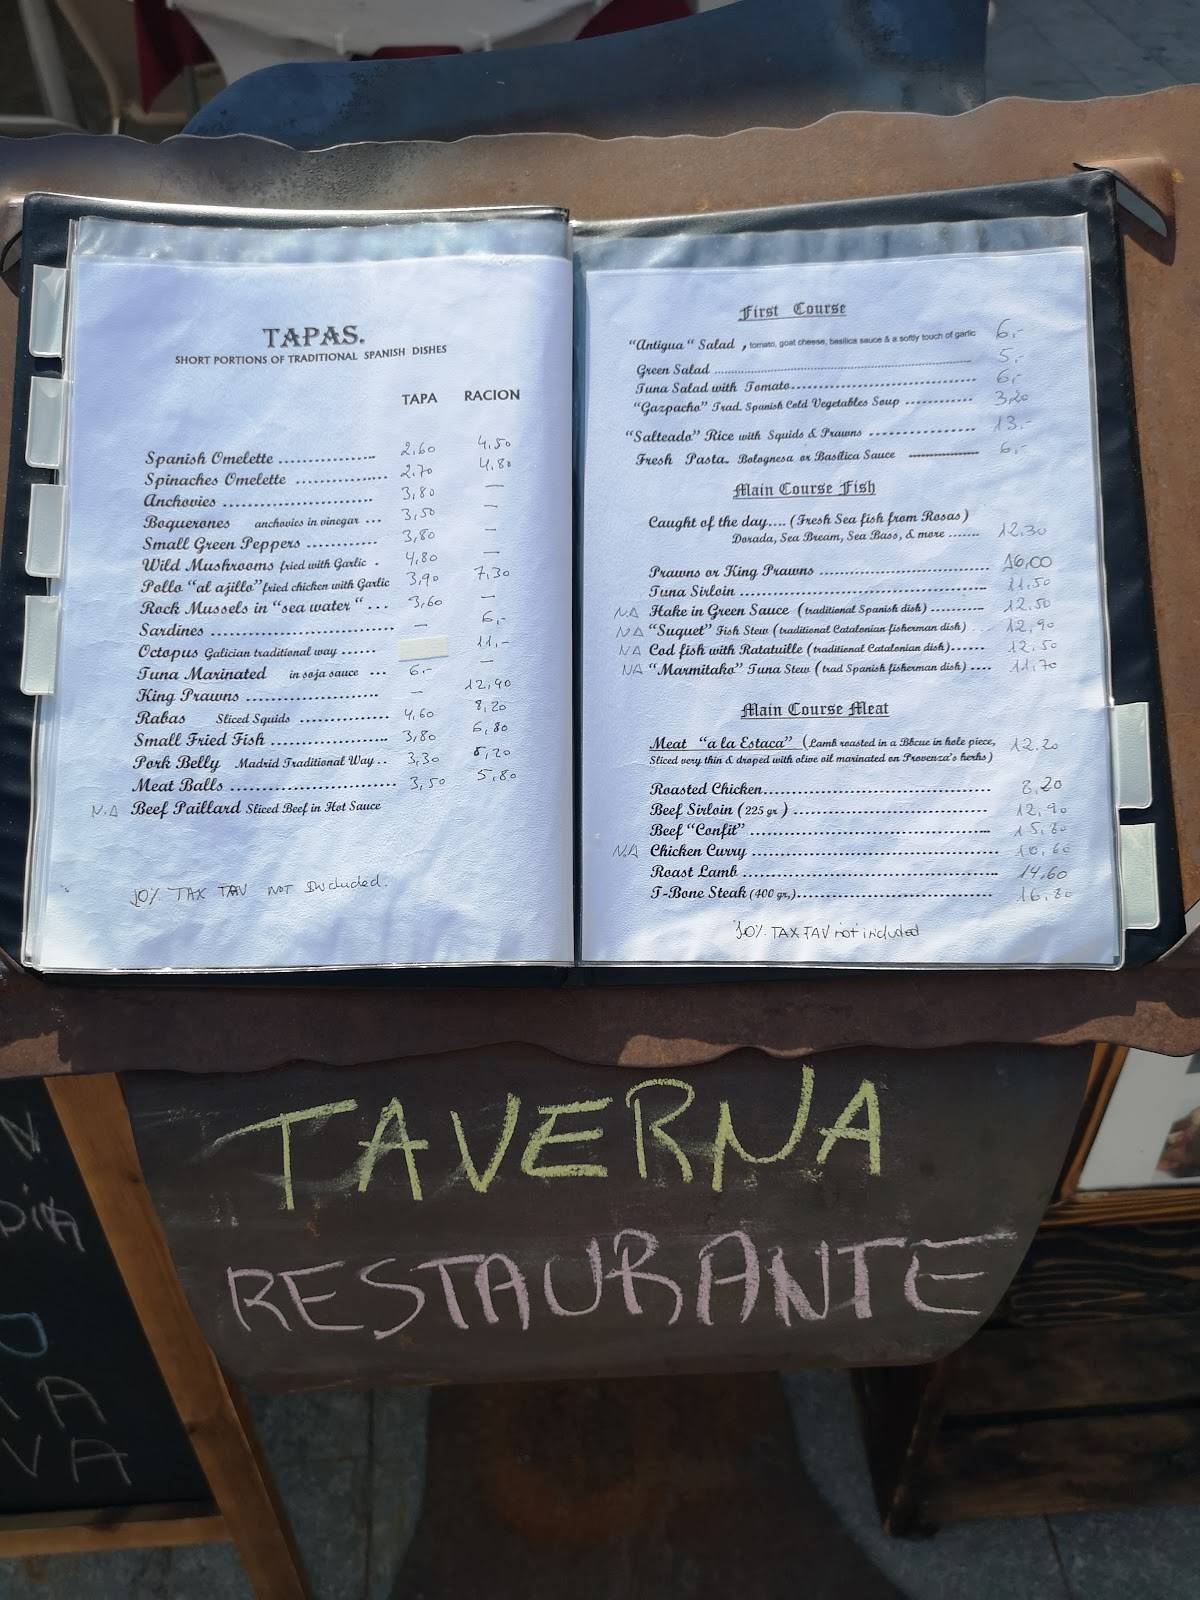 TAPAS.
SHORT PORTIONS OF TRADITIONAL SPANISH DISHES
TAPA RACION
Spanish Omelette .................. 2,60 4,50
Spinaches Omelette ................. 2,70 4,80
Anchovies ............................ 3,80 —
Boquerones anchovies in vinegar ... 3,50 —
Small Green Peppers ............ 3,80 —
Wild Mushrooms fried with Garlic . 4,80 —
Pollo "al ajillo" fried chicken with Garlic 3,90 7,30
Rock Mussels in "sea water" ... 3,60 —
Sardines ................................ — 6,-
Octopus Galician traditional way ...... 11,-
Tuna Marinated in soja sauce ... 6,- —
King Prawns ....................... — 12,90
Rabas Sliced Squids ................ 4,60 8,20
Small Fried Fish ..................... 3,80 6,80
Pork Belly Madrid Traditional Way .. 3,30 5,20
Meat Balls ............................... 3,50 5,80
N.A Beef Paillard Sliced Beef in Hot Sauce
10% TAX IAV NOT Included.
First Course
"Antigua" Salad , tomato, goat cheese, basilica sauce & a softly touch of garlic 6,-
Green Salad .................................................... 5,-
Tuna Salad with Tomato..................................... 6,-
"Gazpacho" Trad. Spanish Cold Vegetables Soup ............ 3,20
"Salteado" Rice with Squids & Prawns .................. 13,-
Fresh Pasta. Bolognesa or Basilica Sauce .................. 6,-
Main Course Fish
Caught of the day.... (Fresh Sea fish from Rosas)
Dorada, Sea Bream, Sea Bass, & more ....... 12,30
Prawns or King Prawns ................................ 16,00
Tuna Sirloin ............................................... 11,50
N.A Hake in Green Sauce (traditional Spanish dish) .......... 12,50
N.A "Suquet" Fish Stew (traditional Catalonian fisherman dish) 12,90
N.A Cod fish with Ratatuille (traditional Catalonian dish)...... 12,50
N.A "Marmitako" Tuna Stew (trad Spanish fisherman dish) .... 11,70
Main Course Meat
Meat "a la Estaca" (Lamb roasted in a Bbcue in hole piece, 12,20
Sliced very thin & droped with olive oil marinated on Provenza's herbs)
Roasted Chicken................................................ 8,20
Beef Sirloin (225 gr.) ....................................... 12,90
Beef "Confit" ................................................. 15,80
N.A Chicken Curry ............................................ 10,60
Roast Lamb .................................................. 14,60
T-Bone Steak (400 gr.)....................................... 16,80
10% TAX IAV not included
TAVERNA
RESTAURANTE